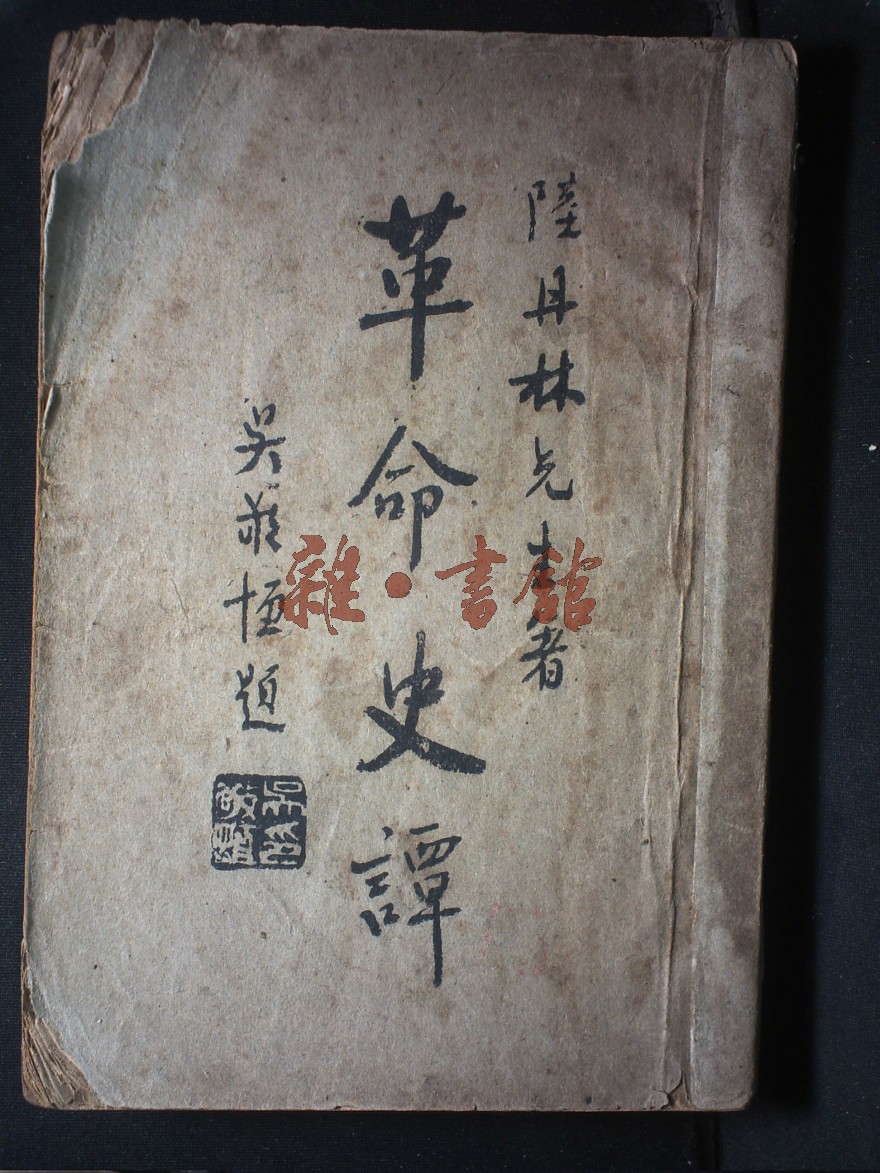 陸丹林先生著
革命史譚
吳敬恒題
吳敬恒印
雜·書館